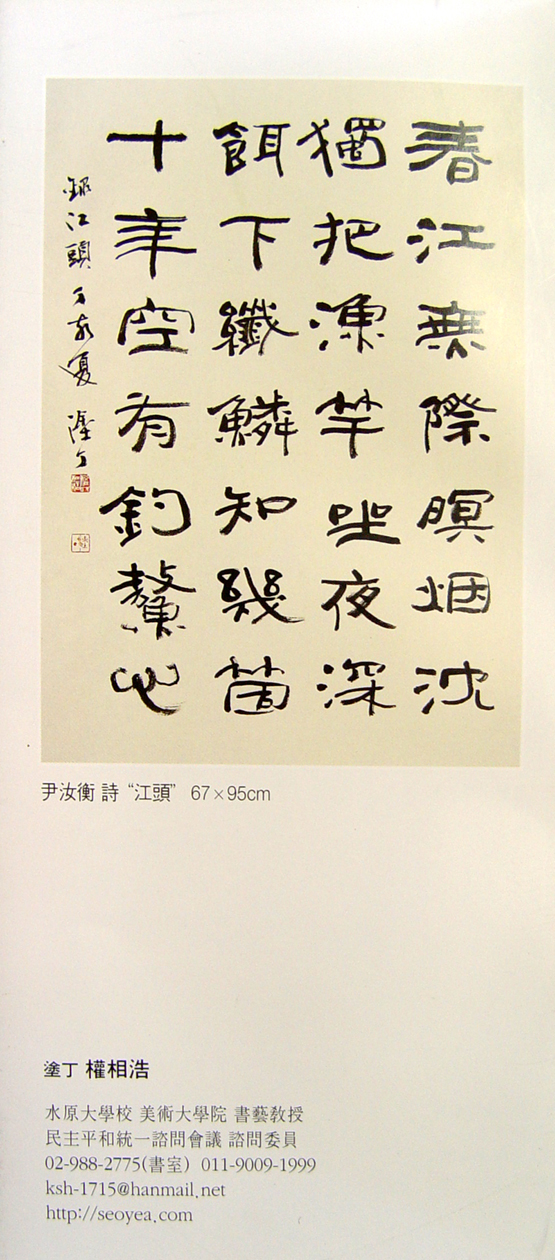 春江無際暝烟沈
獨把漁竿坐夜深
餌下纖鱗知幾箇
十年空有釣鰲心
錄江頭
塗丁
尹汝衡 詩 “江頭” 67×95cm
塗丁 權相浩
水原大學校 美術大學院 書藝敎授
民主平和統一諮問會議 諮問委員
02-988-2775(書室) 011-9009-1999
ksh-1715@hanmail.net
http://seoyea.com